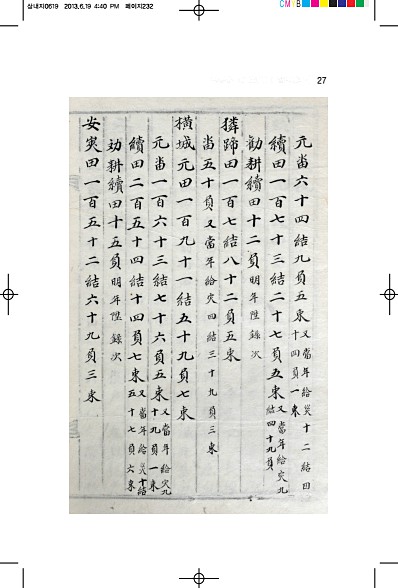 삼내지0619 2013.6.19 4:40 PM 페이지232
CMYB
27
元畓六十四結九負五束又當年給災十二結四十四負一束
續田一百七十三結二十七負五束又當年給灾九結四十九負
勸耕續田十二負明年陞錄次
獜蹄田一百七結八十二負五束
畓五十負又當年給灾四結三十九負三束
橫城元田一百九十一結五十九負七束
元畓一百六十三結七十六負五束又當年給灾九十九負一束
續田二百五十四結十四負七束又當年給災十結五十七負六束
劝耕續田十五負明年陞錄次
安奐田一百五十二結六十九負三束